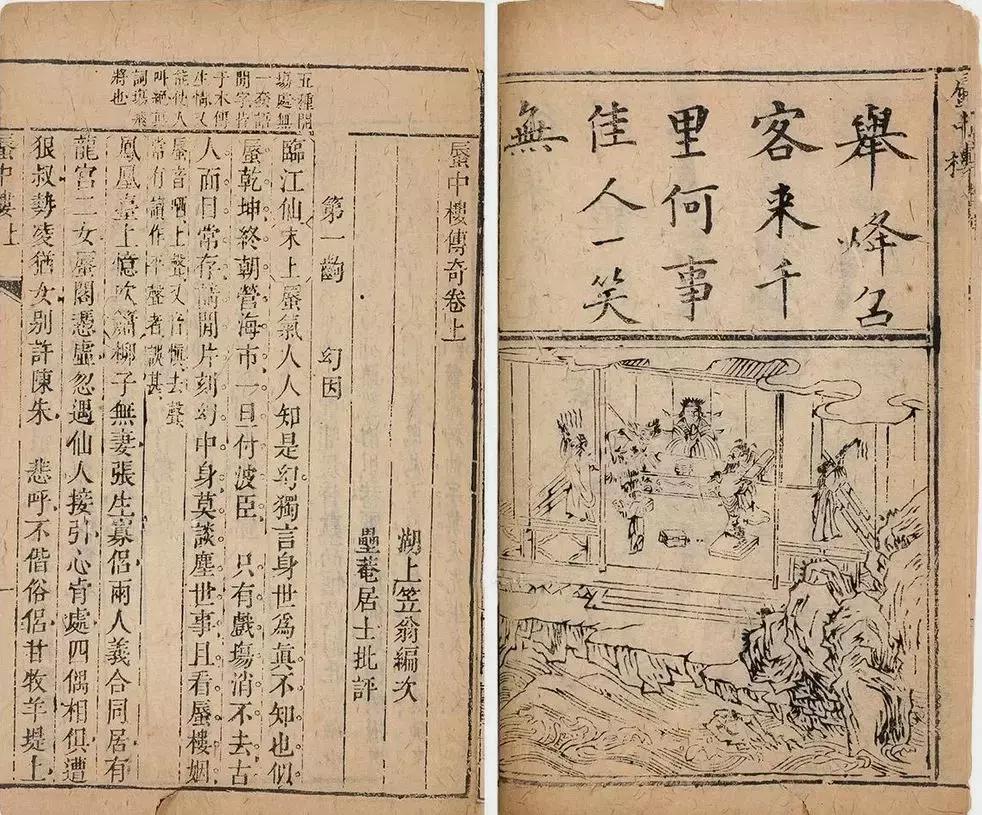 蜃中樓
舉烽召
客来千
里何事
佳人一笑
無
蜃中樓傳奇卷上
湖上笠翁編次
壘菴居士批評
第一齣 幻因
五種開
塲處無
一套語
開字皆
于木傳
生情又
能使人
叫絕真
詞塲飛
將也
臨江仙末上蜃氣人人知是幻獨言身世爲眞不知也似
蜃乾坤終朝營海市一旦付波臣 只有戲塲消不去古
人面目常存請閒片刻幻中身莫談塵世事且看蜃樓姻
蜃音哂上聲又音愼去聲
常有讀作平聲者誤甚
鳳凰臺上憶吹簫柳子無妻張生寡侶兩人義合同居有
龍宮二女蜃閣憑虛忽遇仙人接引心肯處四偶相俱遭
狠叔勢凌猶女别許陳朱 悲呼不偕俗侶甘牧羊堤上
蜃中樓上